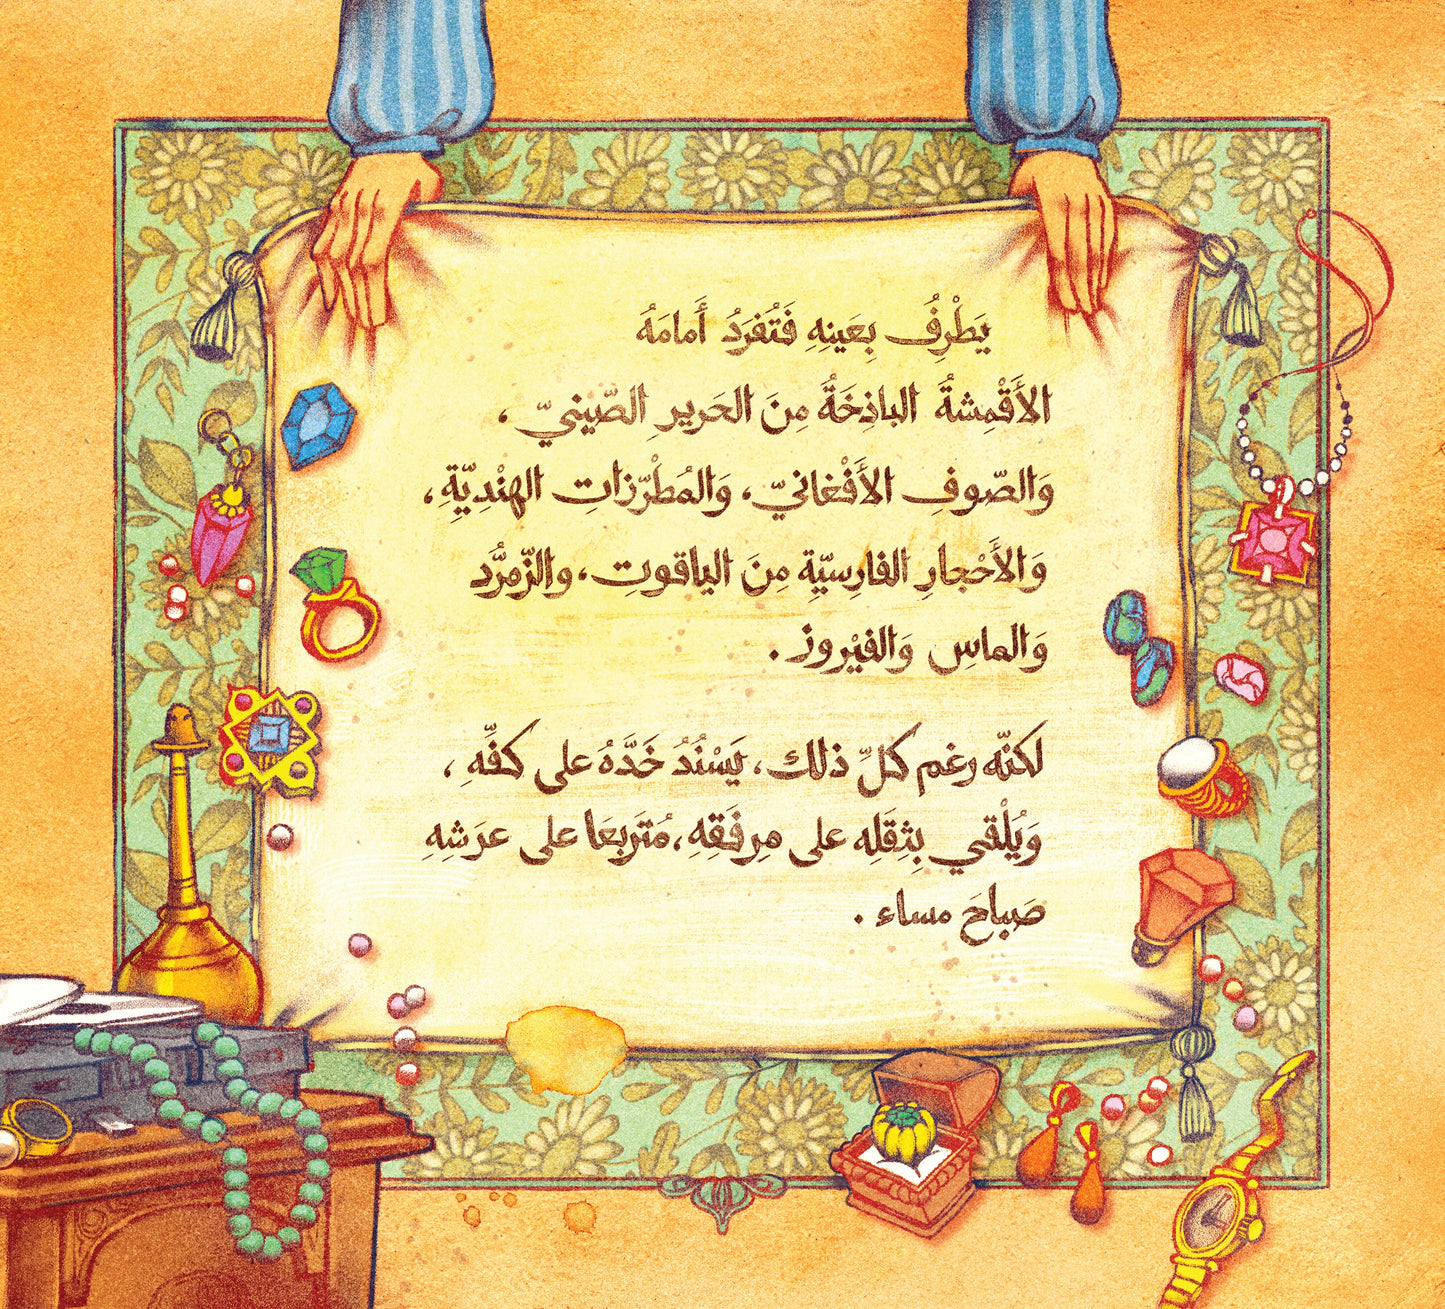 يَطْرِفُ بِعَينِهِ فَتُفرَدُ أَمامَهُ
الأَقْمِشةُ الباذِخَةُ مِنَ الحَريرِ الصّينيّ،
وَالصّوفِ الأَفْغانيّ، وَالمُطْرّزاتِ الهِنْديّةِ،
وَالأَحْجارِ الفارِسيّةِ مِنَ الياقوتِ، والزّمرُّد
وَالماسِ وَالفَيْروز.
لكنّه رغم كلّ ذلك، يَسْنُدُ خَدَّهُ على كفّهِ،
وَيُلْقي بِثِقَلِه على مِرفَقِهِ، مُتَربعَا على عرَشِهِ
صَباحَ مساء.